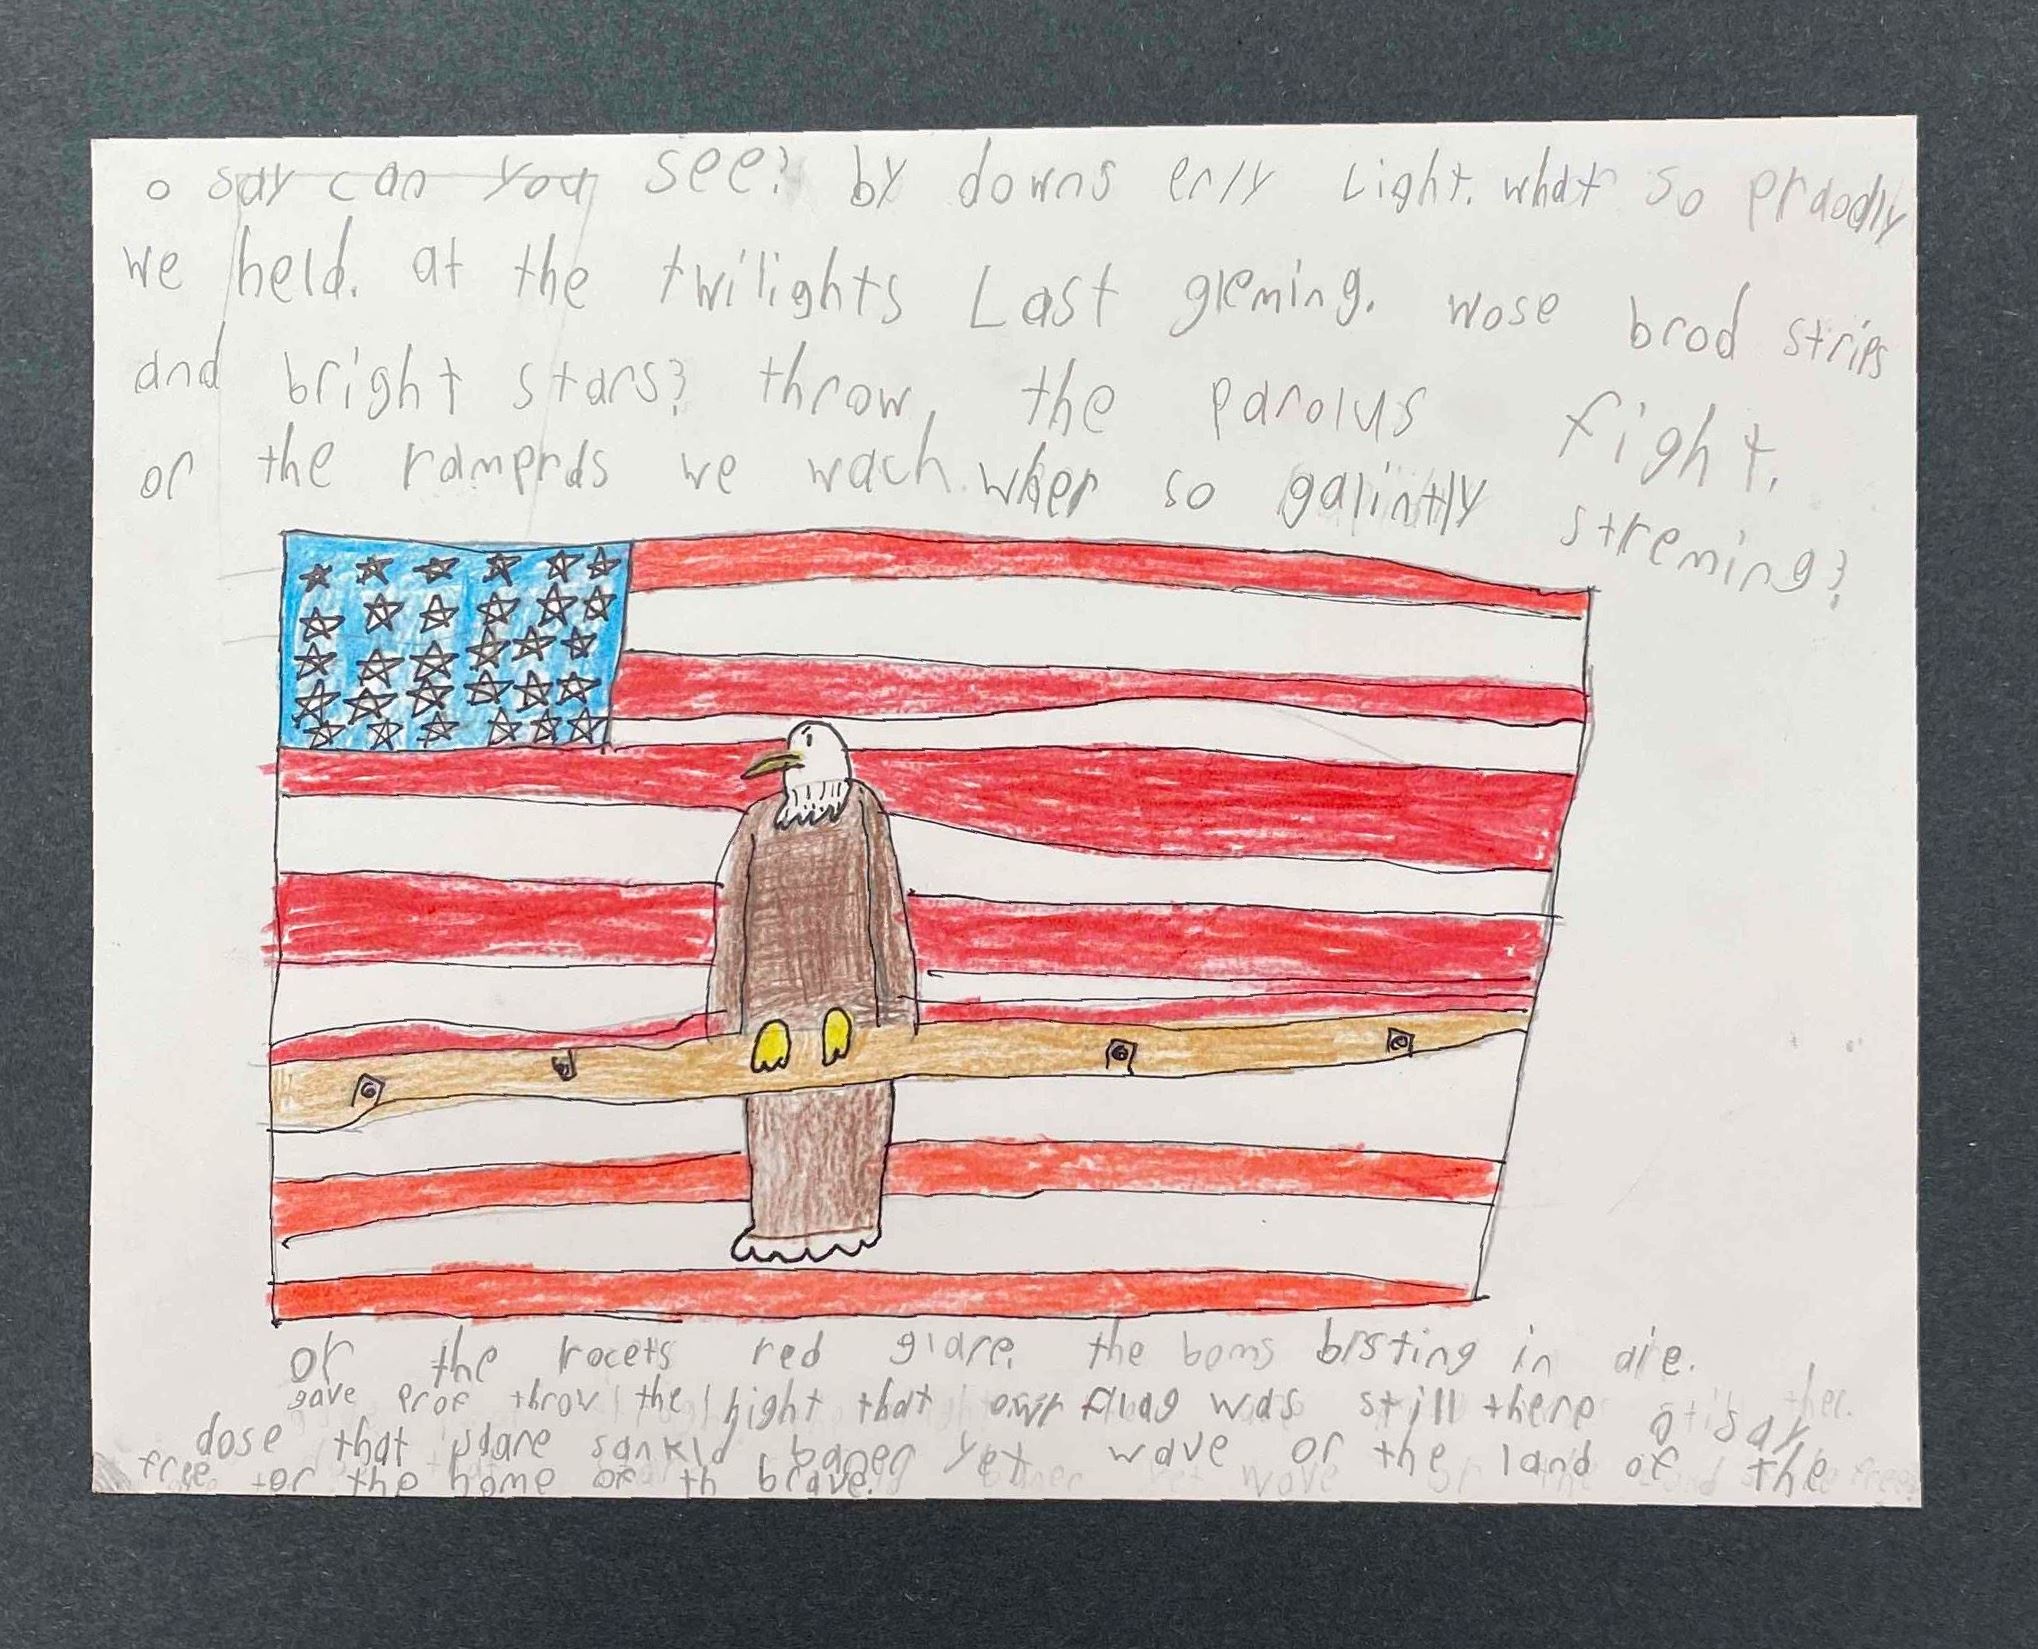 o say can you see? by downs erly Light. what so praodly
we held. at the twilights Last gleming. wose brod strips
and bright stars? throw, the parolus fight.
or the ramprds we wach. wher so galintly streming?
or the rocets red glare. the boms brsting in aie.
gave prof throu the night that owr flag was still there o say
dose that stare sankld baner yet wave or the land of the
free for the home of th brave.